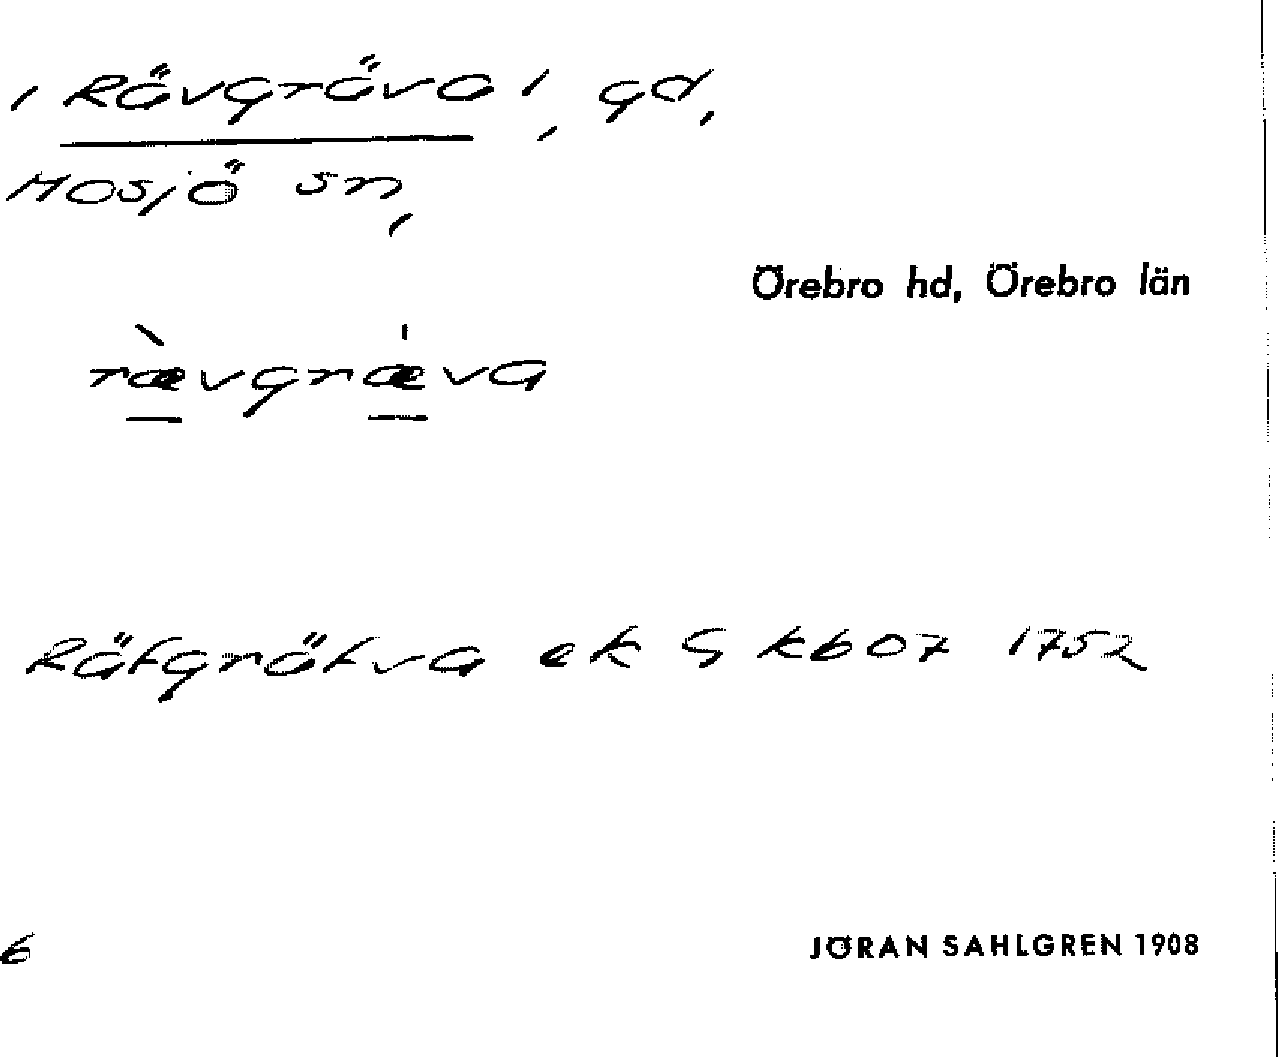 ' Rävgräva ', gd,
Mosjö sn,
Örebro hd, Örebro län
rævgræva
Räfgräfva ek G kb 07 1752
6
JÖRAN SAHLGREN 1908